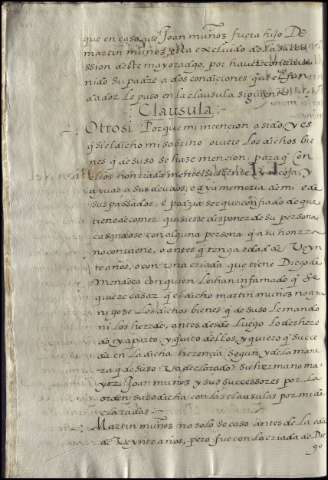 que en caso que Joan muños fuera hijo De
martin muños esta excluido de la suces
sion deste mayorazgo, por hauer contraue
nido su padre a dos condiciones que el fun
dador le puso en la clausula siguiente
Clausula.
Ottosi Porque mi intencion a sido, y es
q̃ el dicho mi sobrino ouiere los dichos bie
nes q̃ de suso se haze mencion para q̃ con
ellos honrradamente
y ayudar a sus deudos, e q̃ aya memoria de mi e de
sus passados. e podria ser que confiado de que
tiene de comer quisiesse disponer de su persona
casandose con alguna persona q̃ a su honrra
no conuiene, o antes q̃ tenga edad de Veyn
te años, o con vna criada que tiene Diego de
Mendoca con quien le han infamado q̃ se
quiere casar q̃ el dicho martin muños no a
ya ni goze Los dichos bienes q̃ de suso le mando
ni los herede, antes desde luego lo deshere
do y aparto y quito dellos, y quiero q̃ succe
da en la dicha herencia segun y de la mane
ra q̃ de suso va declarado su hermano ma
yor Joan munos y sus successores por La
orden susodicha con las clausulas por mi de
claradas.
Martin muños no solo se caso antes de la edad
de Veynte años, pero fue con la criada de Die
go